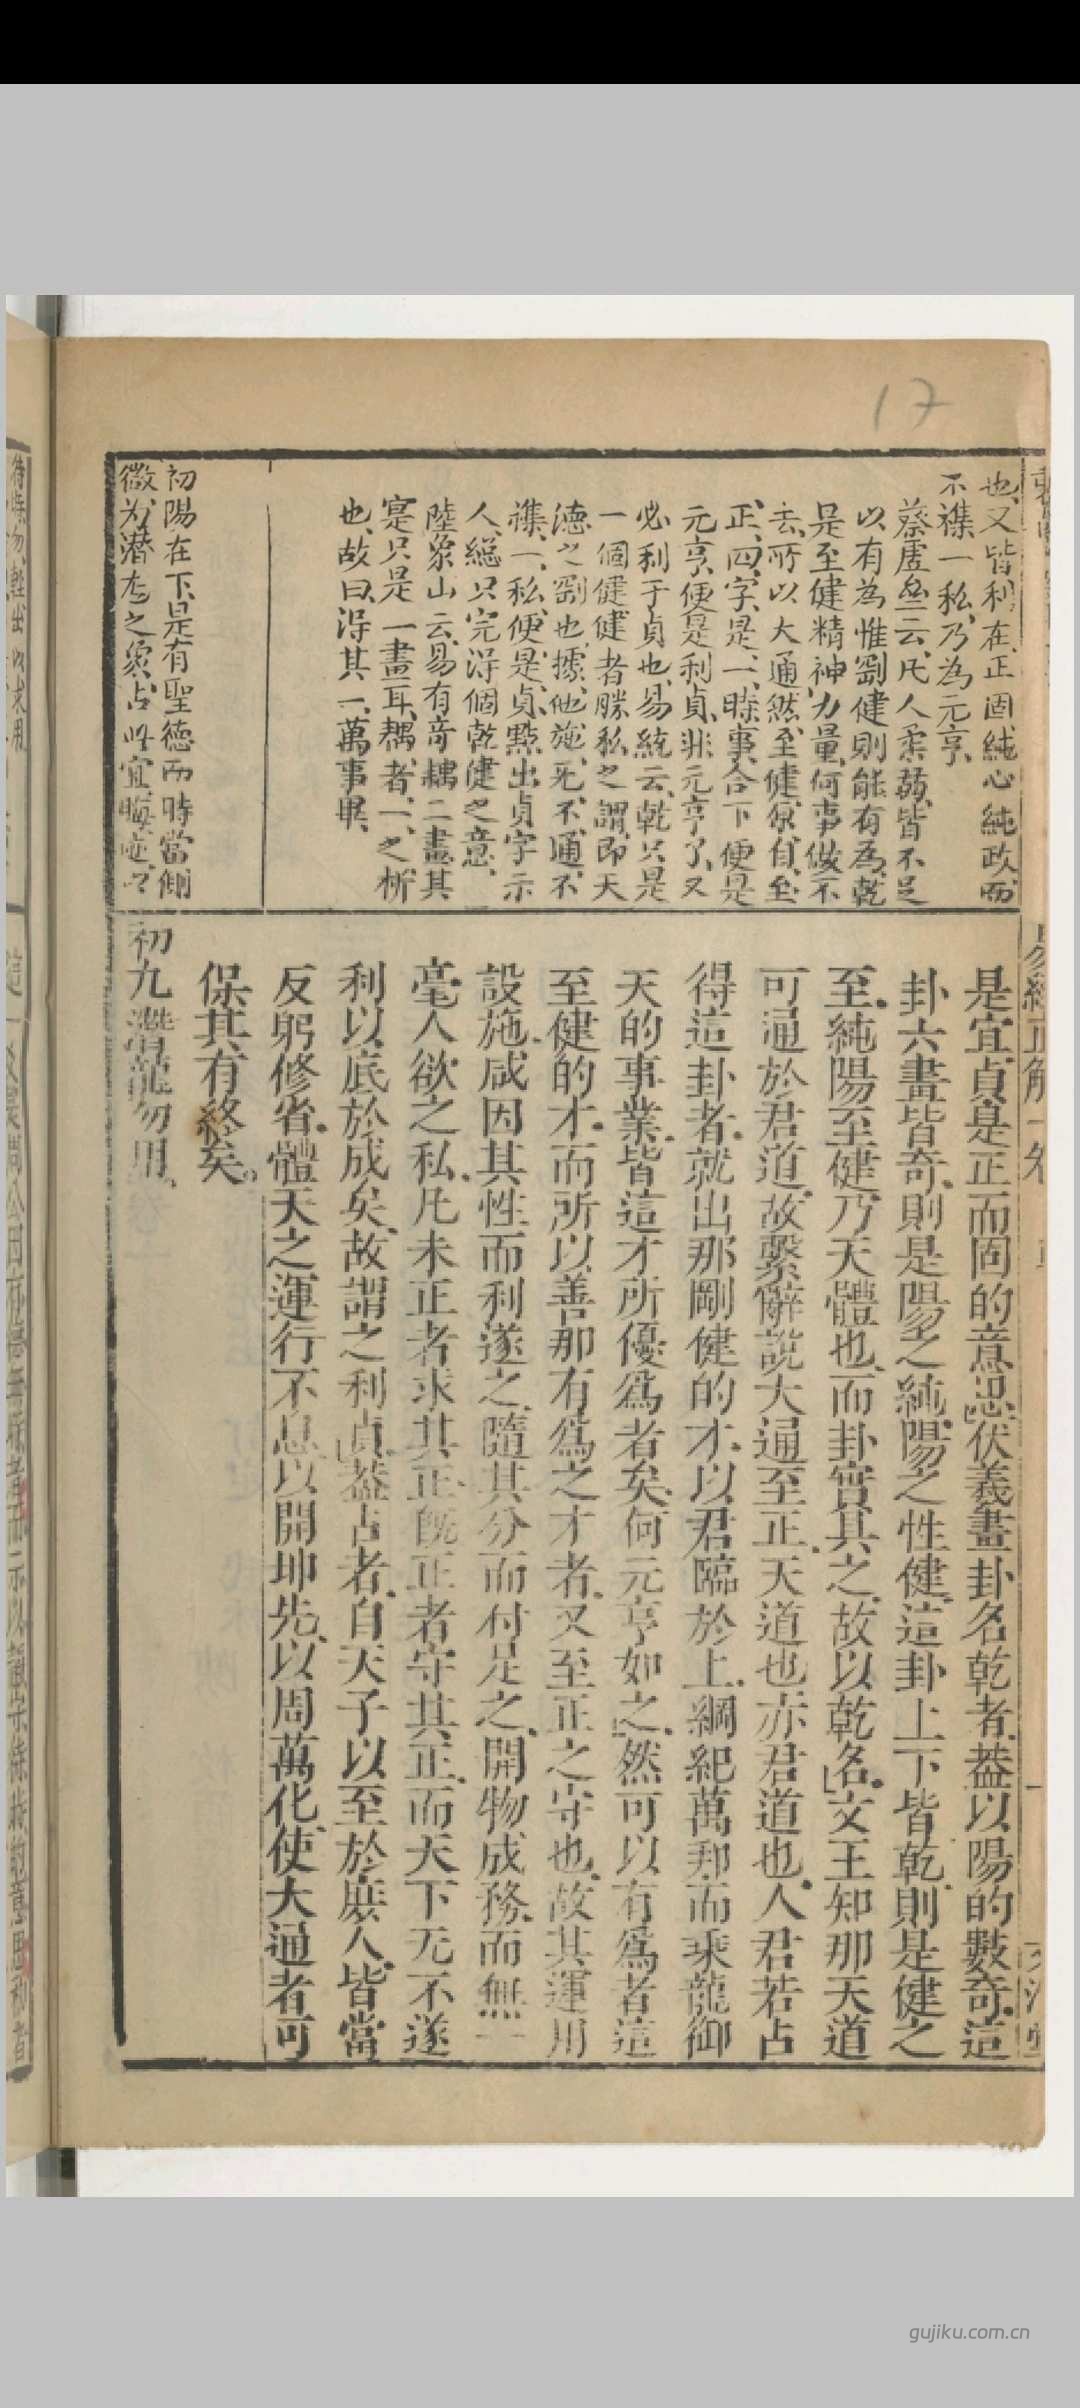 17
也又皆利在正固純心純政而
不襍一私乃為元亨
蔡虛㕘云凡人柔弱皆不足
以有為惟剛健則能有為乾
是至健精神力量何事做不
去所以大通然至健原自至
正四字是一時事合下便是
元亨便是利貞非元亨了又
必利于貞也易統云乾只是
一個健健者勝私之謂即天
德之剛也據他施無不通不
襍一私便是貞點出貞字示
人總只完得個乾健之意
陸象山云易有奇耦二畫其
寔只是一畫耳耦者一之析
也故曰得其一萬事畢
初陽在下是有聖德而時當側
微為潛龙之象占此宜晦迹以
是宜貞是正而固的意思伏羲畫卦名乾者葢以陽的數奇這
卦六畫皆奇則是陽之純陽之性健這卦上下皆乾則是健之
至純陽至健乃天體也而卦實具之故以乾名文王知那天道
可通於君道故繫辭說大通至正天道也亦君道也人君若占
得這卦者就出那剛健的才以君臨於上綱紀萬邦而乘龍御
天的事業皆這才所優為者矣何元亨如之然可以有為者這
至健的才而所以善那有為之才者又至正之守也故其運用
設施咸因其性而利遂之隨其分而付足之開物成務而無一
毫人欲之私凡未正者求其正旣正者守其正而天下无不遂
利以底於成矣故謂之利貞葢占者自天子以至於庶人皆當
反躬修省體天之運行不息以開坤先以周萬化使大通者可
保其有終矣
初九潛龍勿用
易經正解一卷
gujiku.com.cn